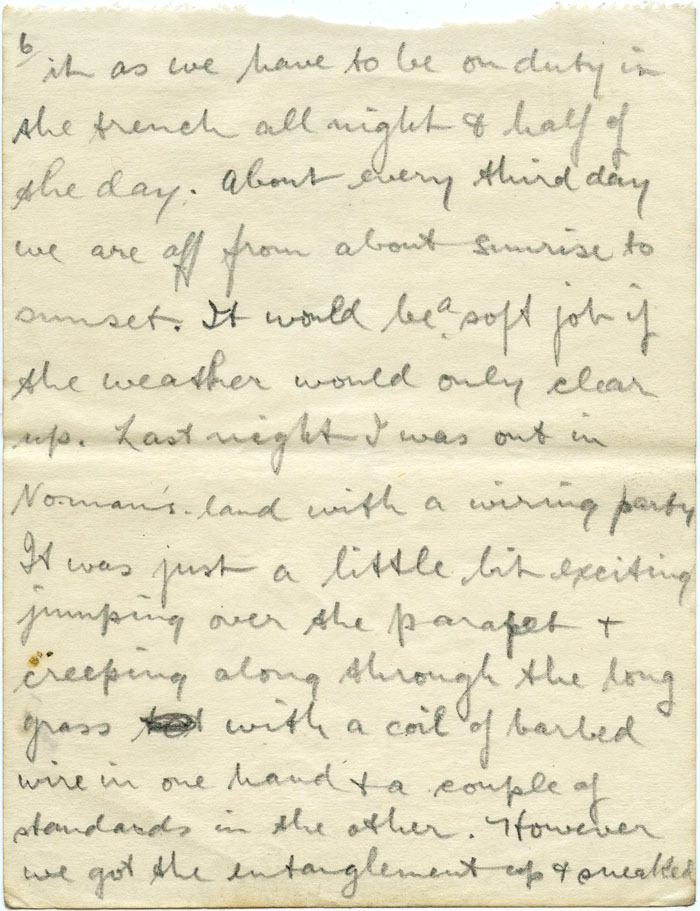 6
it as we have to be on duty in
the trench all night & half of
the day. About every third day
we are off from about sunrise to
sunset. It would be a soft job if
the weather would only clear
up. Last night I was out in
No-man's-land with a wiring party
It was just a little bit exciting
jumping over the parapet +
creeping along through the long
grass with a coil of barbed
wire in one hand + a couple of
standards in the other. However
we got the entanglement up + sneaked